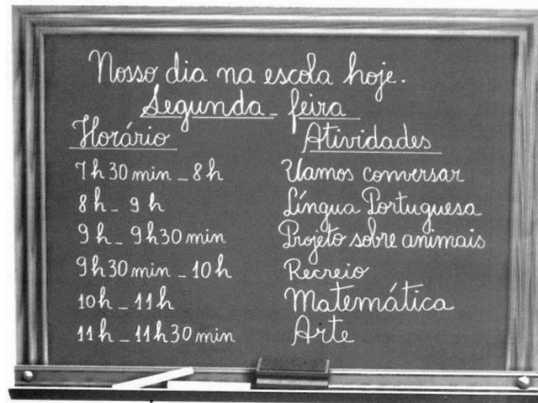 Nosso dia na escola hoje.
Segunda-feira
Horário Atividades
7h30min - 8h Vamos conversar
8h - 9h Língua Portuguesa
9h - 9h30min Projeto sobre animais
9h30min - 10h Recreio
10h - 11h Matemática
11h - 11h30min Arte